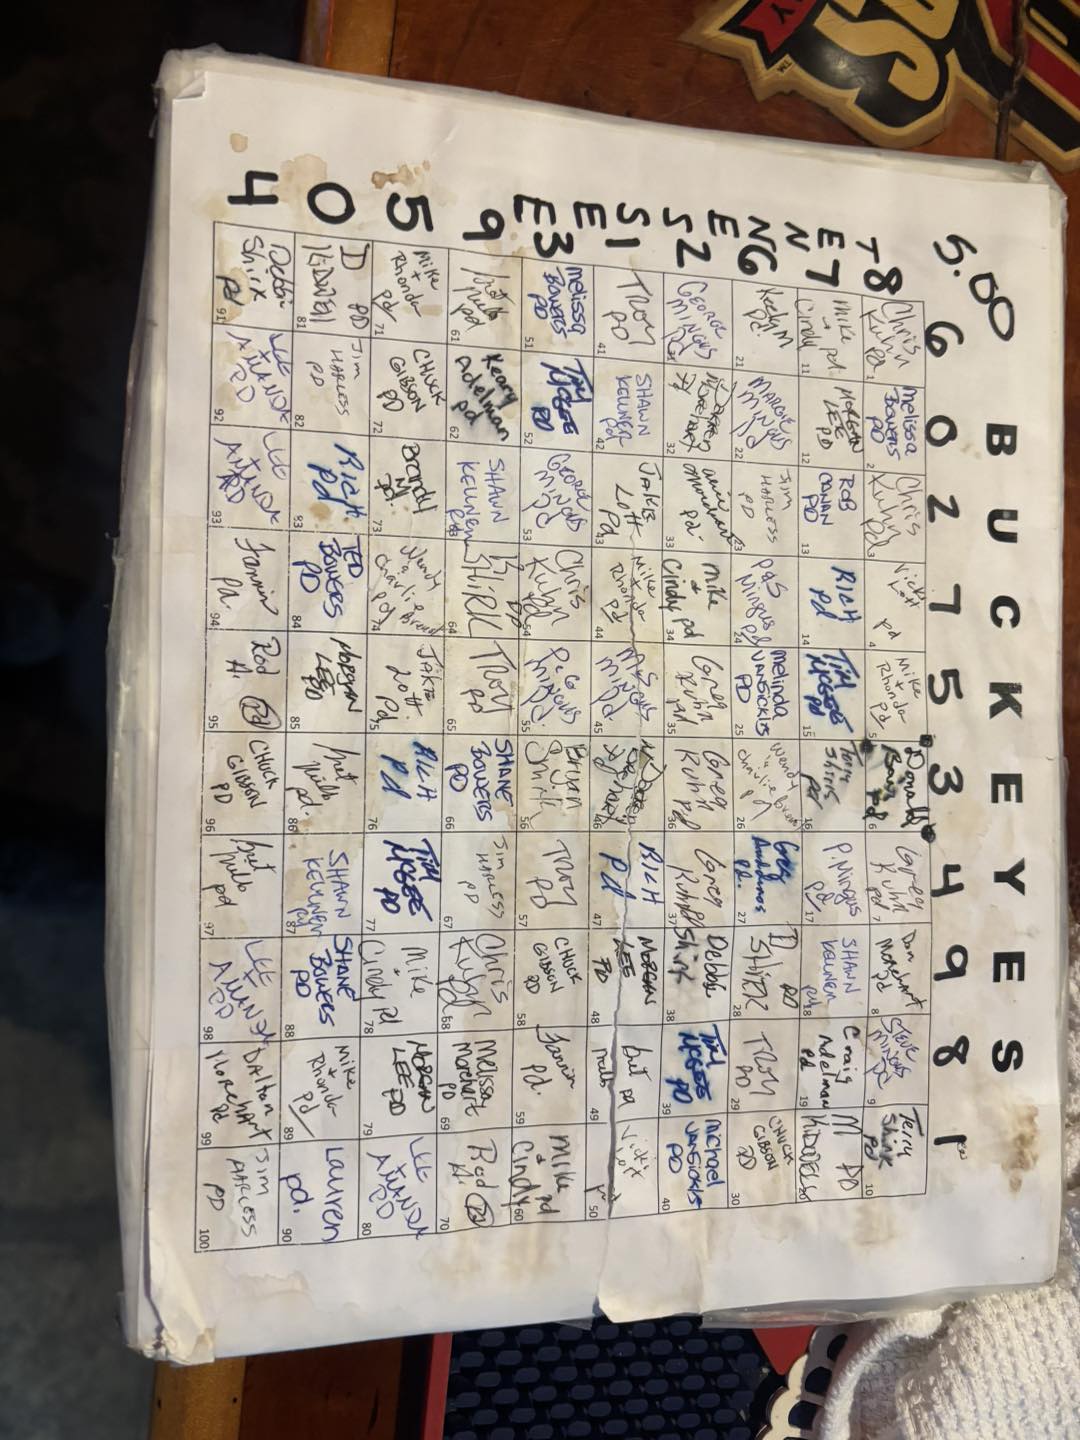 5.00
BUCKEYES
6 0 2 7 5 3 4 9 8 1
TENNESSEE
8 7 6 2 1 3 9 5 0 4
Chris Kuhn Pd 1
Melissa Bowers PD 2
Chris Kuhn Pd 3
Vicki Lott pd 4
Mike + Rhonda pd 5
Donald pd 6
Greg Kuhn pd 7
Dan Morehart pd 8
Steve Mingus pd 9
Terry Shirk Pd 10
Mike + Cindy pd. 11
MORGAN LEE PD 12
ROB CONAN PD 13
RICH Pd 14
Tim McGEE PD 15
Tom pd 16
P. Mingus pd 17
SHAWN KELLNER pd 18
Craig Adelman Pd 19
M KIDWELL PD 20
Keely M pd. 21
MARGIE MINGUS pd 22
Jim HARLESS PD 23
P&S Mingus pd 24
melinda VANSICKLE PD 25
Wendy & Charlie pd 26
Greg Pd. 27
D SHIRK PD 28
TROY PD 29
CHUCK GIBSON PD 30
GEORGE MINGUS Pd
32
pd. 33
mike + Cindy pd 34
Greg Kuhn pd 35
Greg Kuhn Pd 36
Greg Kuhn Pd 37
Debbie Shirk 38
Tim McGEE PD 39
michael VANSICKLE PD 40
TROY PD 41
SHAWN KELLNER pd 42
JAKE Lott Pd 43
Mike + Rhonda pd 44
MINGUS pd 45
46
RICH Pd 47
MORGAN LEE PD 48
pd 49
Vicki Lott 50
melissa BOWERS PD 51
Tim McGEE PD 52
George MINGUS pd 53
Chris Kuhn Pd 54
P. G MINGUS pd. 55
Brian Shirk 56
TROY Pd 57
CHUCK GIBSON PD 58
Pd. 59
Mike + Cindy pd 60
pd 61
Keary Adelman pd 62
SHAWN KELLNER pd 63
SHIRK PD 64
TROY PD 65
SHANE BOWERS PD 66
Jim HARLESS PD 67
Chris Kuhn Pd 68
Melissa Morehart PD 69
Rod H. Pd 70
Mike + Rhonda pd 71
CHUCK GIBSON PD 72
Brandy M pd. 73
Wendy & Charlie pd 74
JAKE Lott Pd. 75
RICH Pd 76
Tim McGEE PD 77
Mike + Cindy pd 78
MORGAN LEE PD 79
LEE + AMANDA PD 80
D KIDWELL PD 81
Jim HARLESS PD 82
RICH Pd 83
TED BOWERS PD 84
MORGAN LEE PD 85
pd. 86
SHAWN KELLNER pd 87
SHANE BOWERS PD 88
Mike + Rhonda pd 89
Lauren pd. 90
Debbie Shirk pd 91
LEE + AMANDA PD 92
LEE + AMANDA PD 93
Pd. 94
Rod H. Pd 95
CHUCK GIBSON PD 96
pd 97
LEE + AMANDA PD 98
Dalton Morehart Pd 99
Jim HARLESS PD 100